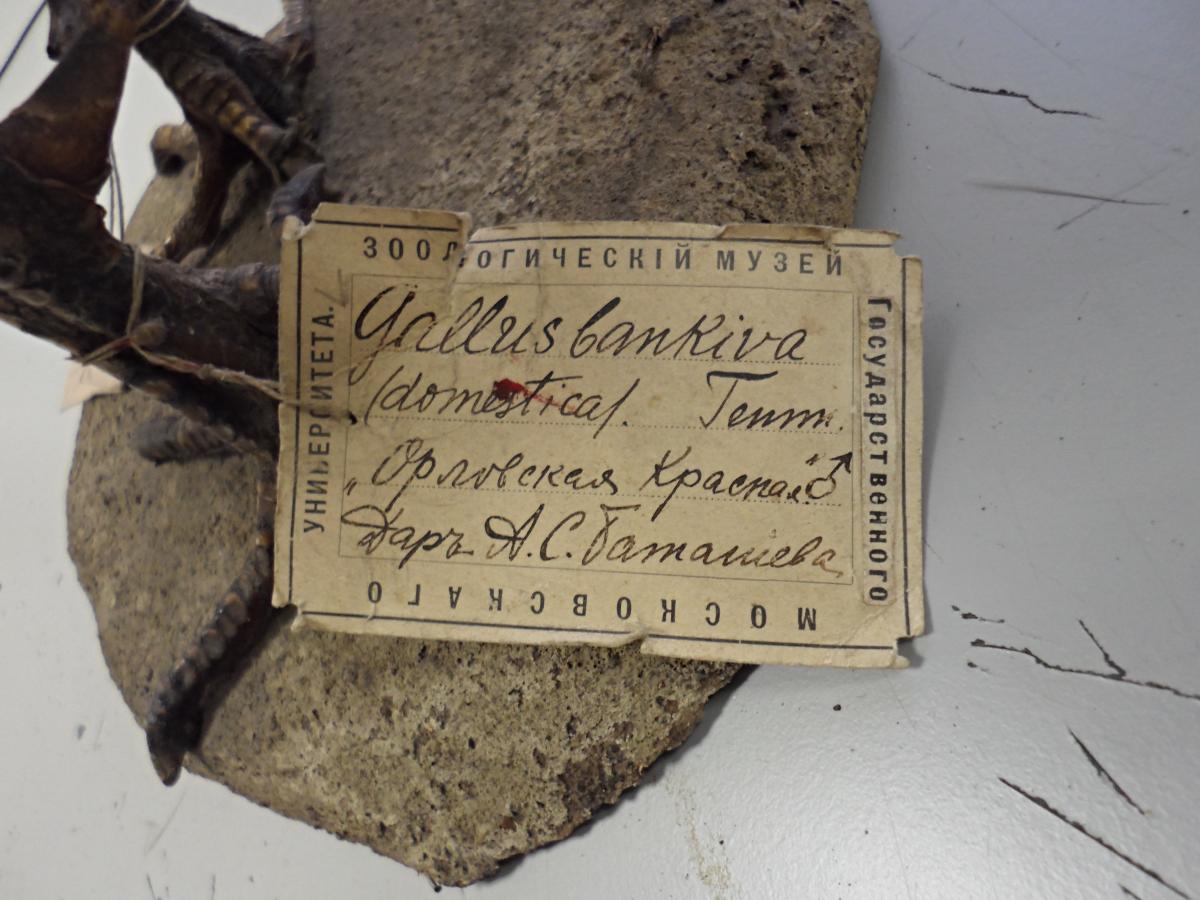 ЗООЛОГИЧЕСКІЙ МУЗЕЙ
Государственного
МОСКОВСКАГО
УНИВЕРСИТЕТА.
Gallus bankiva
(domestica). Temm.
„Орловская Красная“ ♂
Даръ А.С. Баташева